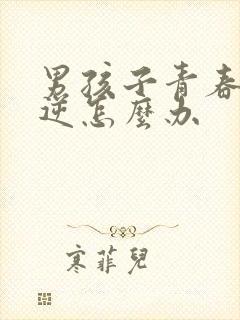 男孩子青春
逆怎麼办
寒菲兒